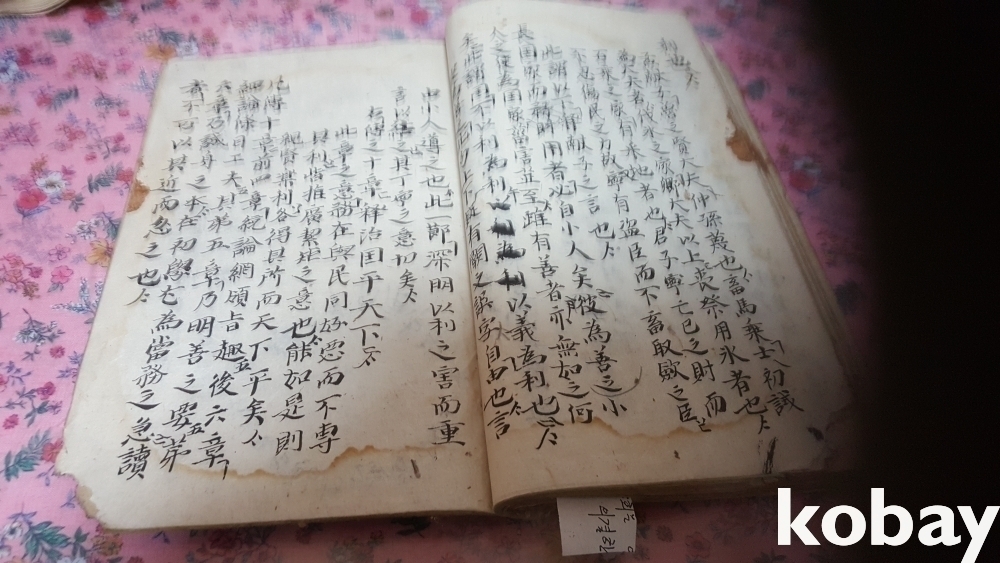 孟獻子魯之賢大夫仲孫蔑也畜馬乘士初試
為大夫者也伐氷之家卿大夫以上喪祭用氷者也
百乘之家有采地者也君子寧亡己之財而
不忍傷民之力故寧有盜臣而不畜聚斂之臣
此謂以下釋獻子之言也
長国家而務財用者必自小人矣彼為善之小
人之使為国家菑害並至雖有善者亦無如之何
矣此謂国不以利為利以義為利也
此句上下疑有闕文誤字自由也言
由小人導之也此一節深明以利之害而重
言以結之其丁寧之意切矣
右傳之十章釋治国平天下
此章之意務在與民同好惡而不專
其利皆推廣絜矩之意也能如是則
親賢樂利各得其所而天下平矣
凡傳十章前四章統論綱領旨趣後六章
細論條目工夫其第五章乃明善之要第
六章乃誠身之本在初學尤為當務之急讀
者不可以其近而忽之也
kobay